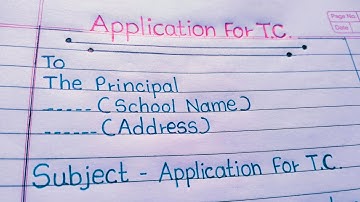 Application For T.C.
Page No.
Date
To
The Principal
----- (School Name)
------ (Address)
Subject - Application For T.C.